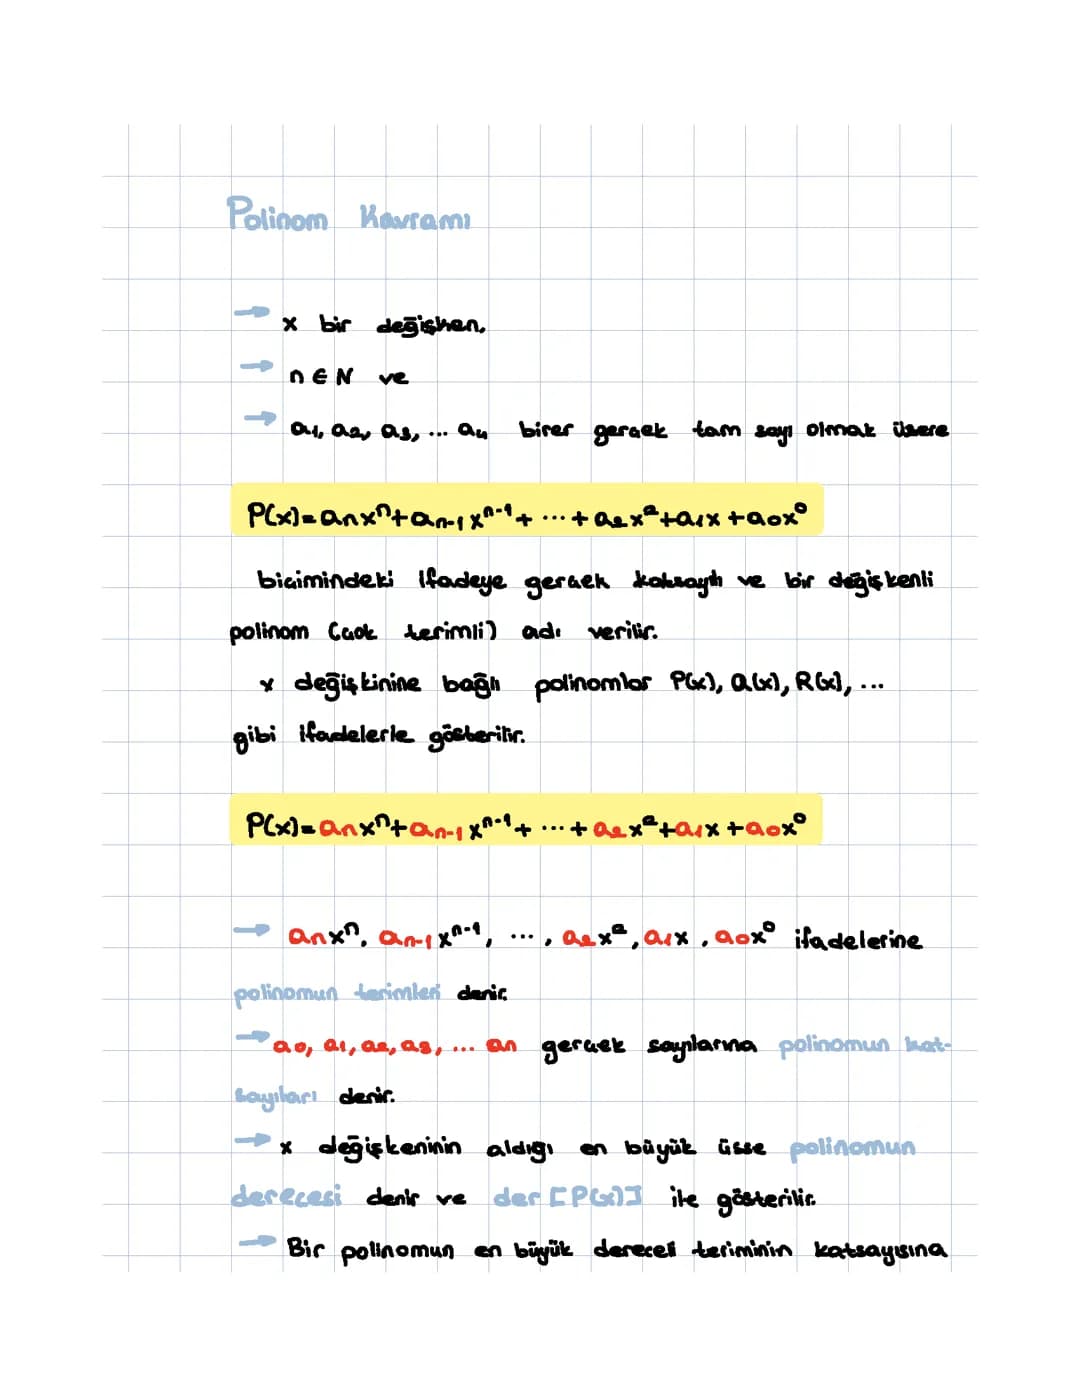 Polinom Kavramı
→ x bir değişken,
→ n ∈ N ve
→ a₁, a₂, a₃, ... a₄ birer gerçek tam sayı olmak üzere
P(x)=aₙxⁿ+aₙ₋₁xⁿ⁻¹+ ... + a₂x²+a₁x+a₀x⁰
biçimindeki ifadeye gerçek katsayılı ve bir değişkenli
polinom (çok terimli) adı verilir.
x değişkinine bağlı polinomlar P(x), Q(x), R(x), ...
gibi ifadelerle gösterilir.
P(x)=aₙxⁿ+aₙ₋₁xⁿ⁻¹+ ... + a₂x²+a₁x+a₀x⁰
→ aₙxⁿ, aₙ₋₁xⁿ⁻¹, ... , a₂x², a₁x, a₀x⁰ ifadelerine
polinomun terimleri denir.
→ a₀, a₁, a₂, a₃, ... aₙ gerçek sayılarına polinomun kat-
sayıları denir.
→ x değişkeninin aldığı en büyük üsse polinomun
derecesi denir ve der [P(x)] ile gösterilir.
→ Bir polinomun en büyük dereceli teriminin katsayısına